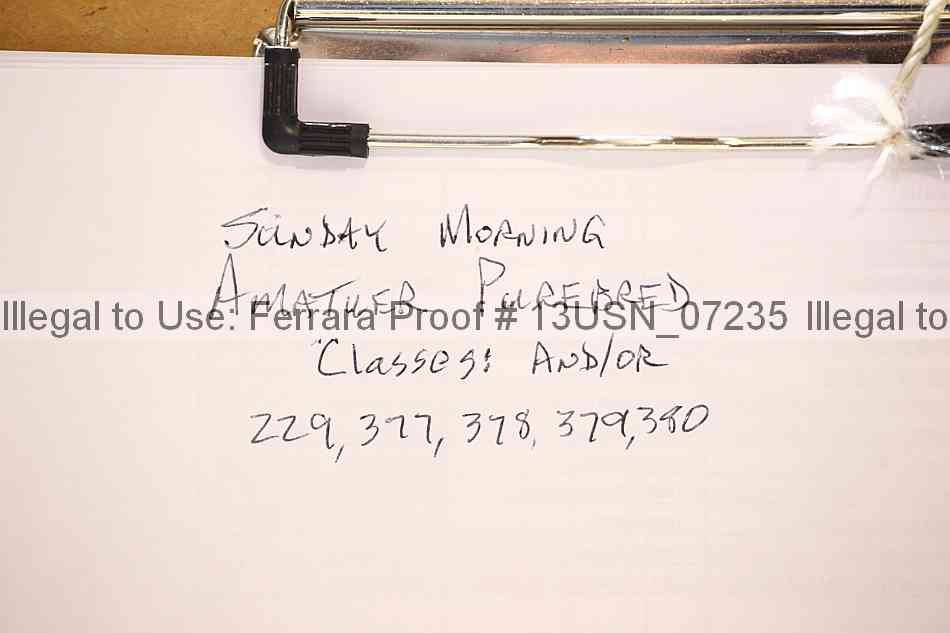 Sunday Morning
Amatuer Purebred
Illegal to Use: Ferrara Proof # 13USN_07235 Illegal to
Classes: And/or
229, 377, 378, 379, 380